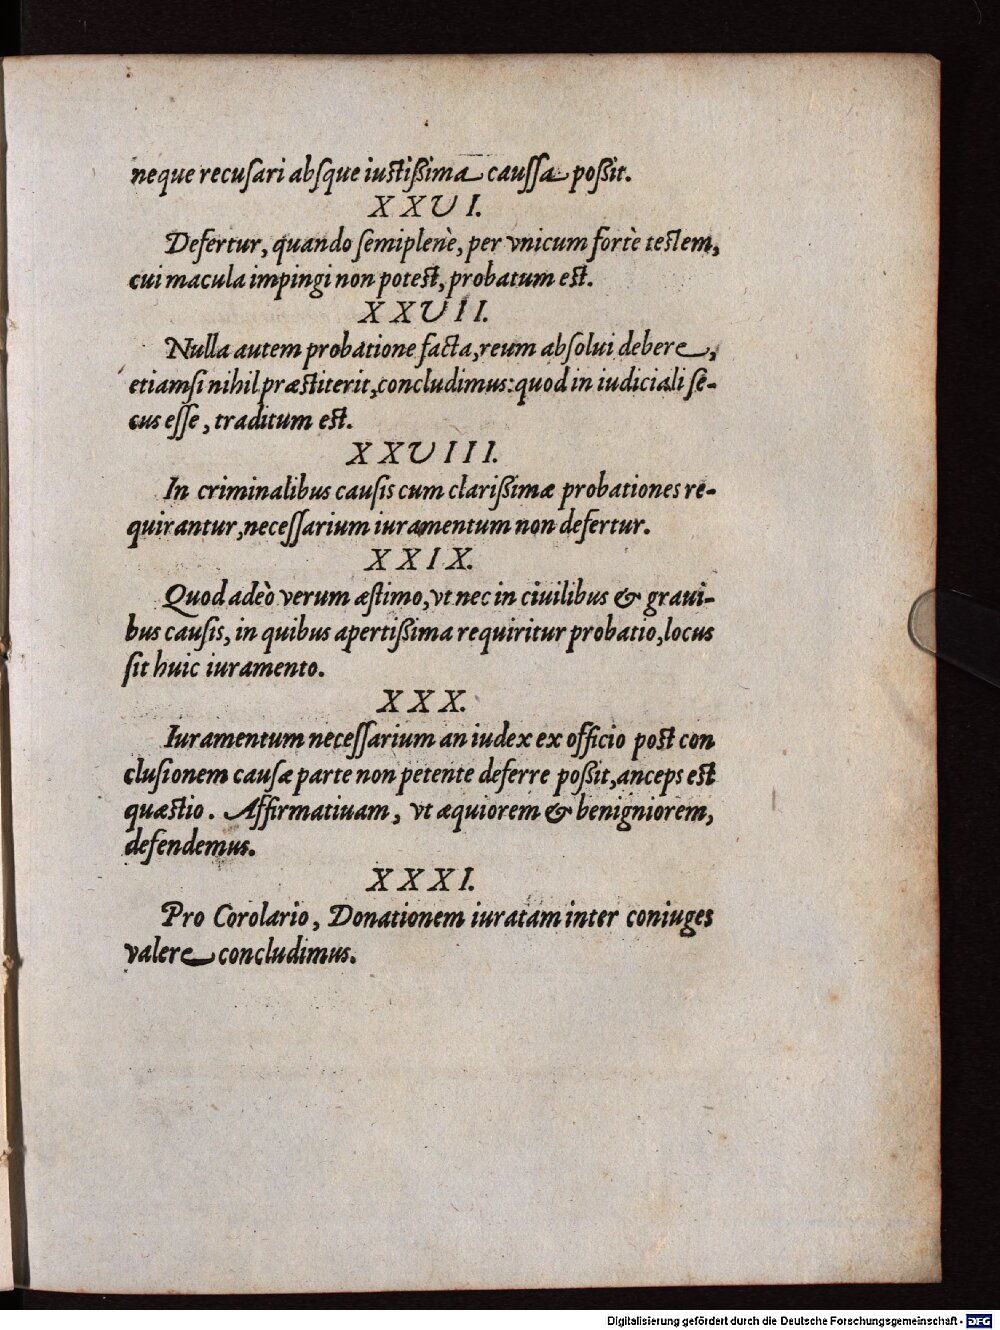 neque recusari absque iustißima caussa poßit.
XXVI.
Defertur, quando semiplenè, per vnicum fortè testem,
cui macula impingi non potest, probatum est.
XXVII.
Nulla autem probatione facta, reum absolui debere,
etiamsi nihil præstiterit, concludimus: quod in iudiciali se-
cus esse, traditum est.
XXVIII.
In criminalibus causis cum clarißimæ probationes re-
quirantur, necessarium iuramentum non defertur.
XXIX.
Quod adeò verum æstimo, vt nec in ciuilibus & graui-
bus causis, in quibus apertißima requiritur probatio, locus
sit huic iuramento.
XXX.
Iuramentum necessarium an iudex ex officio post con
clusionem causæ parte non petente deferre poßit, anceps est
quæstio. Affirmatiuam, vt æquiorem & benigniorem,
defendemus.
XXXI.
Pro Corolario, Donationem iuratam inter coniuges
valere concludimus.
Digitalisierung gefördert durch die Deutsche Forschungsgemeinschaft - DFG